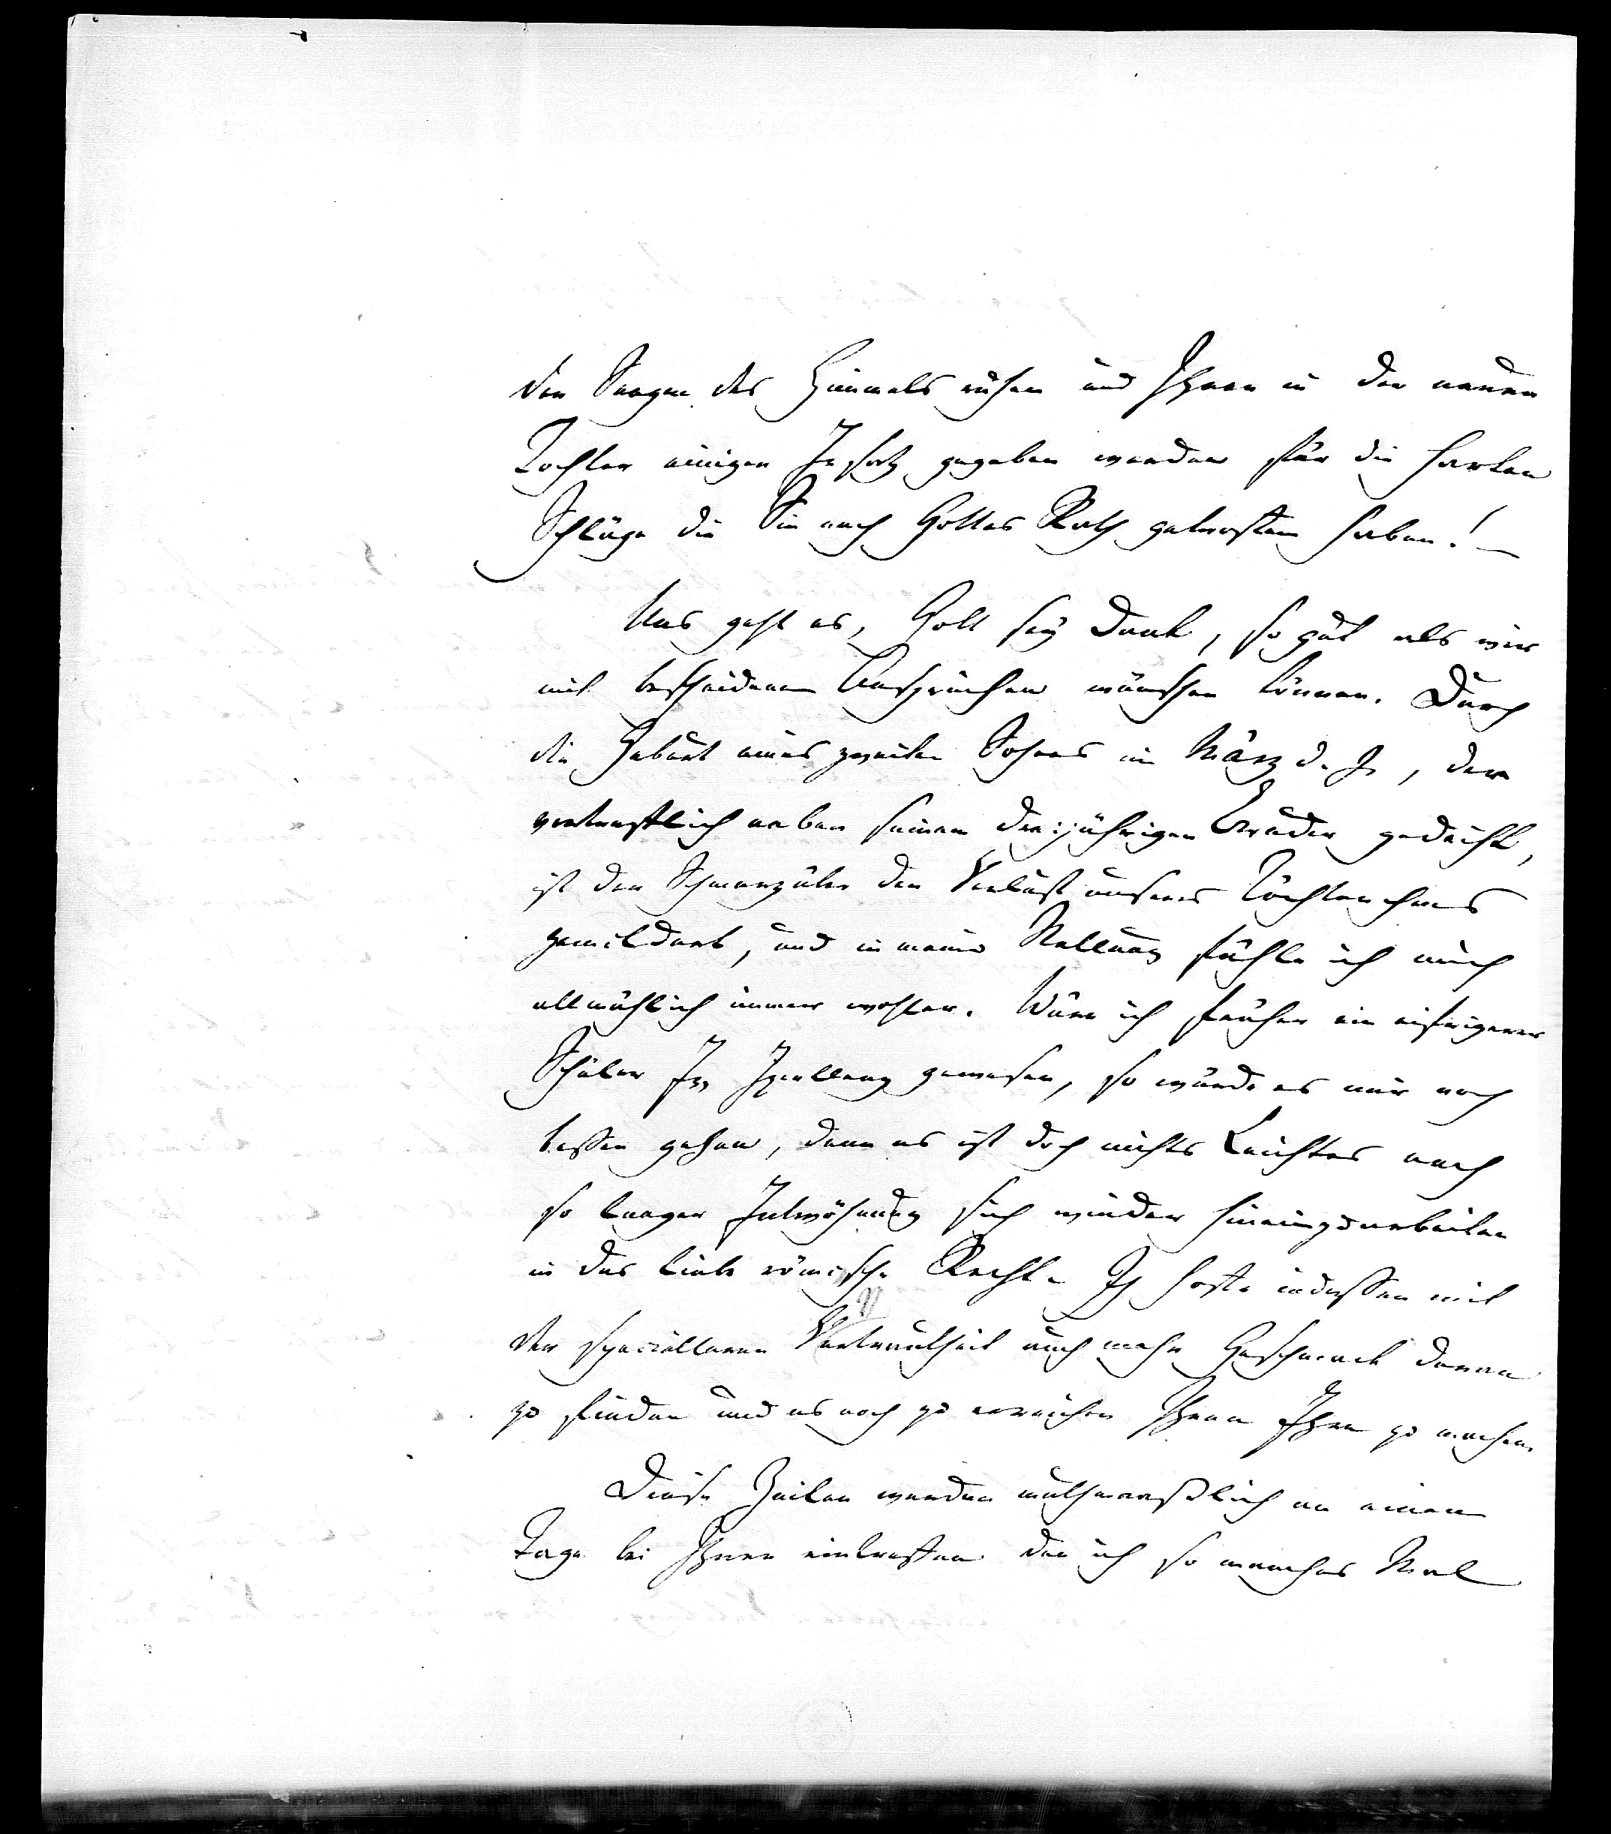 der Seegen des Himmels ruhen und Ihnen in der neuen
Tochter einigen Ersatz gegeben werden für die harten
Schläge die Sie nach Gottes Rath getroffen haben! —
Uns geht es, Gott sey Dank, so gut als wir
mit bescheidenen Ansprüchen wünschen können. Durch
die Geburt eines zweiten Sohnes im März d. J., der
vortrefflich neben seinem dreijährigen Bruder gedeiht,
ist der Schmerz über den Verlust unseres Töchterchens
gemildert, und in meiner Stellung fühle ich mich
allmählich immer wohler. Wäre ich früher ein eifrigerer
Schüler gewesen, so würde es mir noch
besser gehen, denn es ist doch nichts Leichtes nach
so langer Entwöhnung sich wieder hineinzuarbeiten
in das liebe römische Recht. Ich hoffe indessen mit
der specielleren Vertrautheit auch mehr Geschmack daran
zu finden und es noch zu erreichen Ihnen Ehre zu machen.
Diese Zeilen werden muthmaßlich an einem
Tage bei Ihnen eintreffen den ich so manches Mal